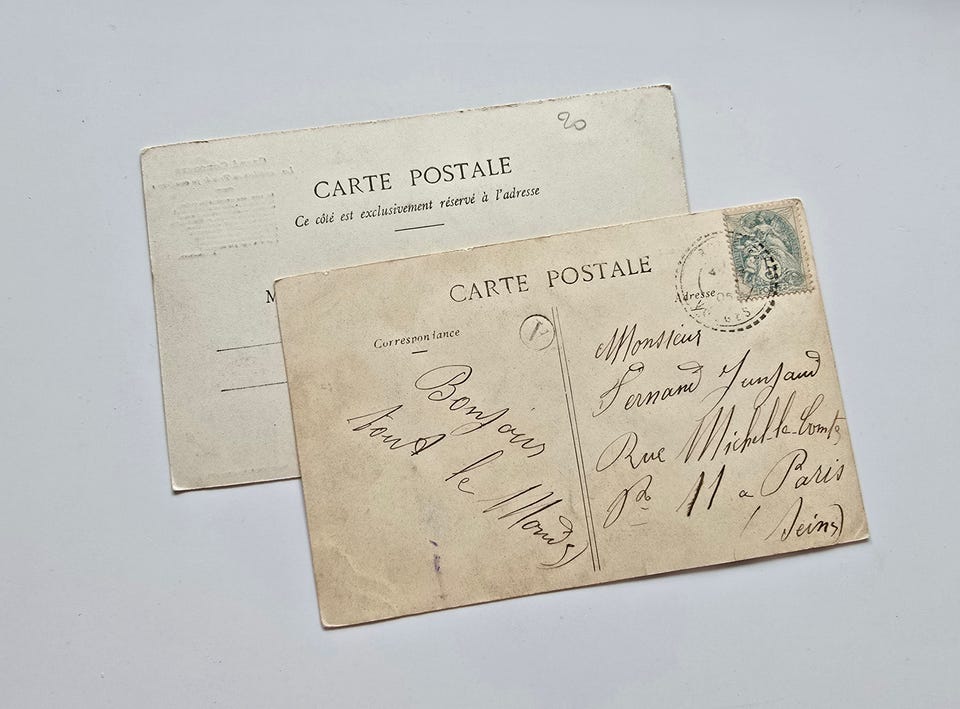 20
CARTE POSTALE
Ce côté est exclusivement réservé à l'adresse
M
CARTE POSTALE
Correspondance
Adresse
Bonjour
tout le Monde
Monsieur
Fernand
Rue Michel-le-Comte
No 11 a Paris
(Seine)